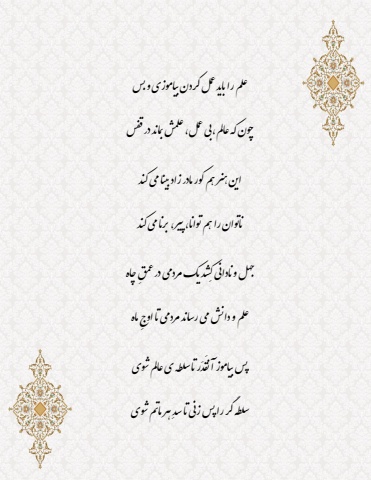 علم را باید عمل کردن بیاموزی و بس
چون که عالم ،بی عمل، علمش بماند در قفس
این هنر هم کور مادر زاد بینا می کند
ناتوان را هم توانا، پیر، برنا می کند
جهل و نادانی کشد یک مردمی در عمقِ چاه
علم و دانش می رساند مردمی تا اوجِ ماه
پس بیاموز آنقَدَر تا سلطه ی عالم شوی
سلطه گر را پس زنی تا سدِ هر ماتم شوی